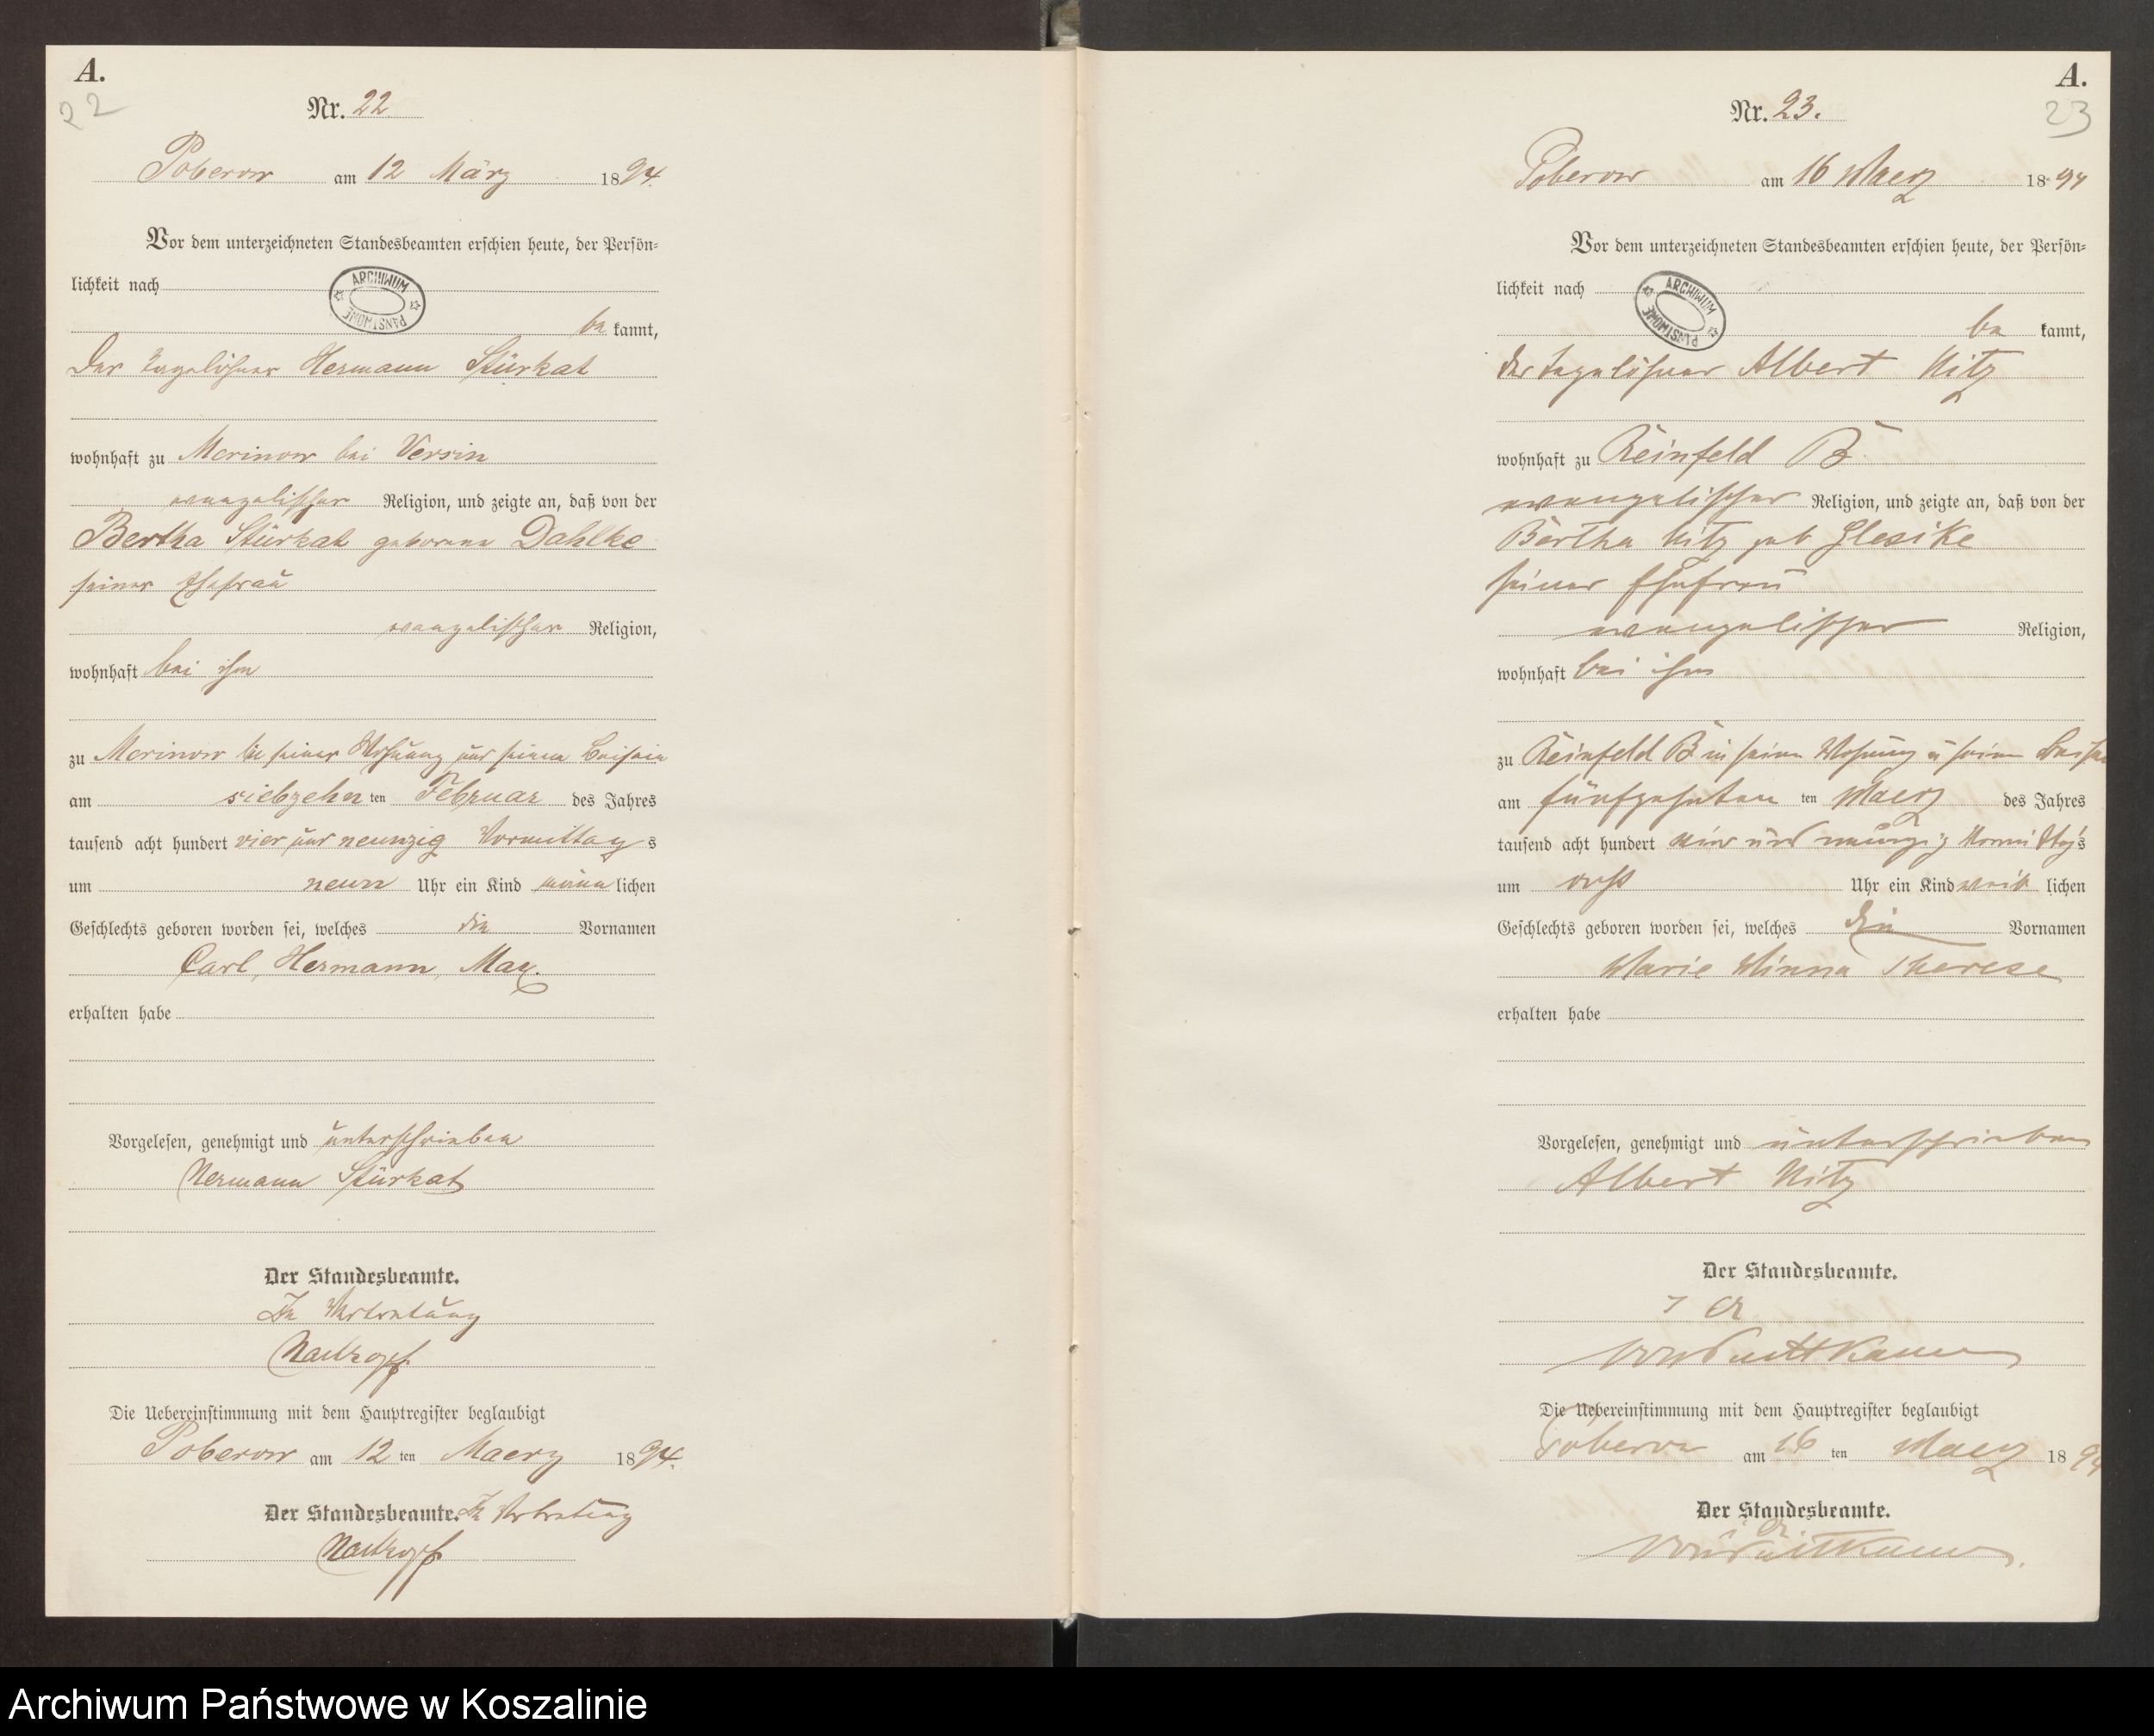 A.
22
Nr. 22
Poberow am 12 März 1894.
Vor dem unterzeichneten Standesbeamten erschien heute, der Persön-
lichkeit nach
ARCHIWUM PAŃSTWOWE
be kannt,
Der Tagelöhner Hermann Stürkat
wohnhaft zu Merinow bei Versin
evangelischer Religion, und zeigte an, daß von der
Bertha Stürkat geborene Dahlke
seiner Ehefrau
evangelischer Religion,
wohnhaft bei ihm
zu Merinow in seiner Wohnung und seinem Beisein
am siebzehn ten Februar des Jahres
tausend acht hundert vier und neunzig Vormittag s
um neun Uhr ein Kind männ lichen
Geschlechts geboren worden sei, welches die Vornamen
Carl, Hermann, Max.
erhalten habe
Vorgelesen, genehmigt und unterschrieben
Hermann Stürkat
Der Standesbeamte.
In Vertretung
Die Uebereinstimmung mit dem Hauptregister beglaubigt
Poberow am 12 ten Maerz 1894.
Der Standesbeamte. In Vertretung
A.
23
Nr. 23.
Poberow am 16 Maerz 1894
Vor dem unterzeichneten Standesbeamten erschien heute, der Persön-
lichkeit nach
ARCHIWUM PAŃSTWOWE
be kannt,
der Tagelöhner Albert Nitz
wohnhaft zu Reinfeld B
evangelischer Religion, und zeigte an, daß von der
Bertha Nitz geb Glesike
seiner Ehefrau
evangelischer Religion,
wohnhaft bei ihm
zu Reinfeld B in seiner Wohnung u seinem Beisein
am fünfzehnten ten Maerz des Jahres
tausend acht hundert vier und neunzig Vormittags
um acht Uhr ein Kind weib lichen
Geschlechts geboren worden sei, welches die Vornamen
Marie Minna Therese
erhalten habe
Vorgelesen, genehmigt und unterschrieben
Albert Nitz
Der Standesbeamte.
von Puttkamer
Die Uebereinstimmung mit dem Hauptregister beglaubigt
Poberow am 16 ten Maerz 1894
Der Standesbeamte.
von Puttkamer.
Archiwum Państwowe w Koszalinie